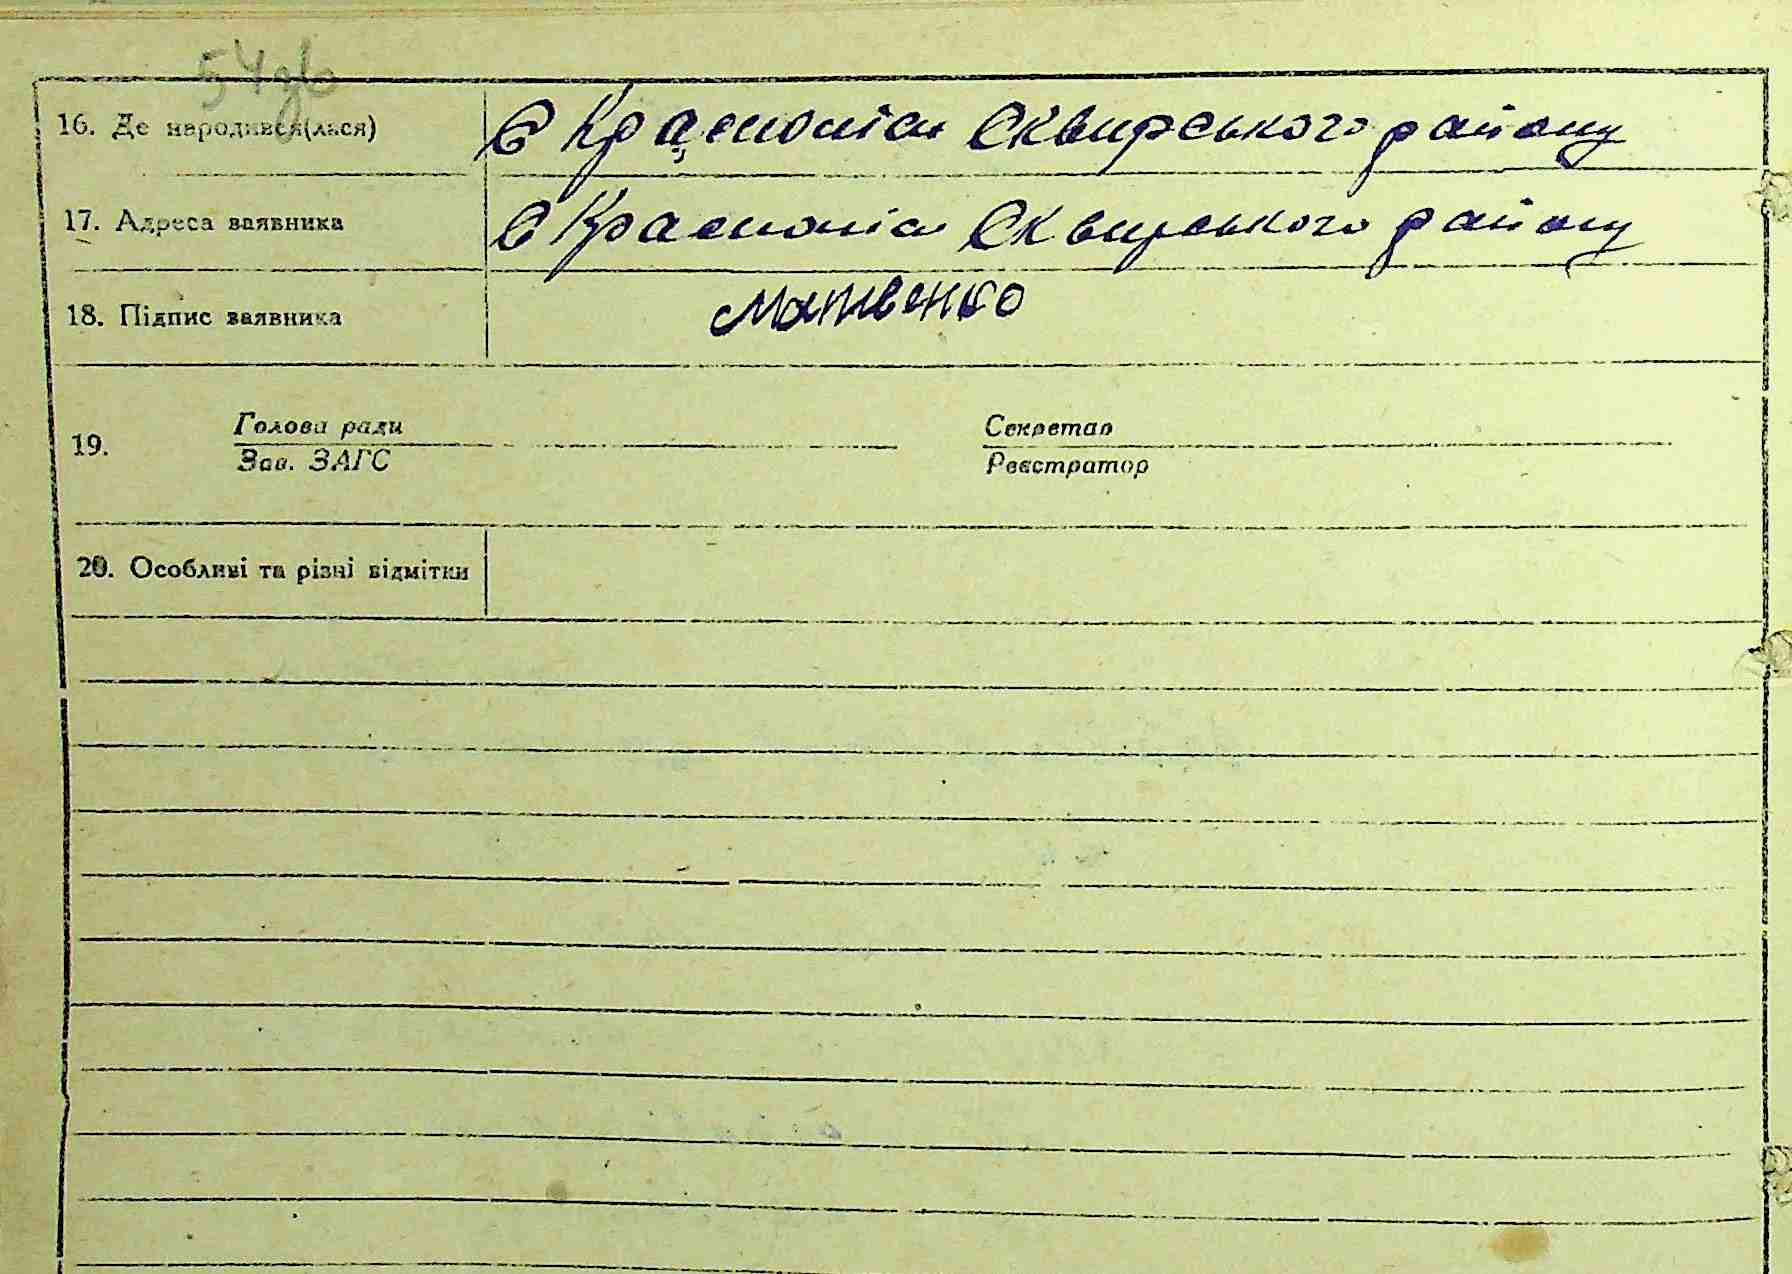 54зв
16. Де народився(лася) С Краснопілка Сквирського району
17. Адреса заявника С Краснопілка Сквирського району
18. Підпис заявника Матвенко
19. Голова ради Секретар
Зав. ЗАГС Реєстратор
20. Особливі та різні відмітки